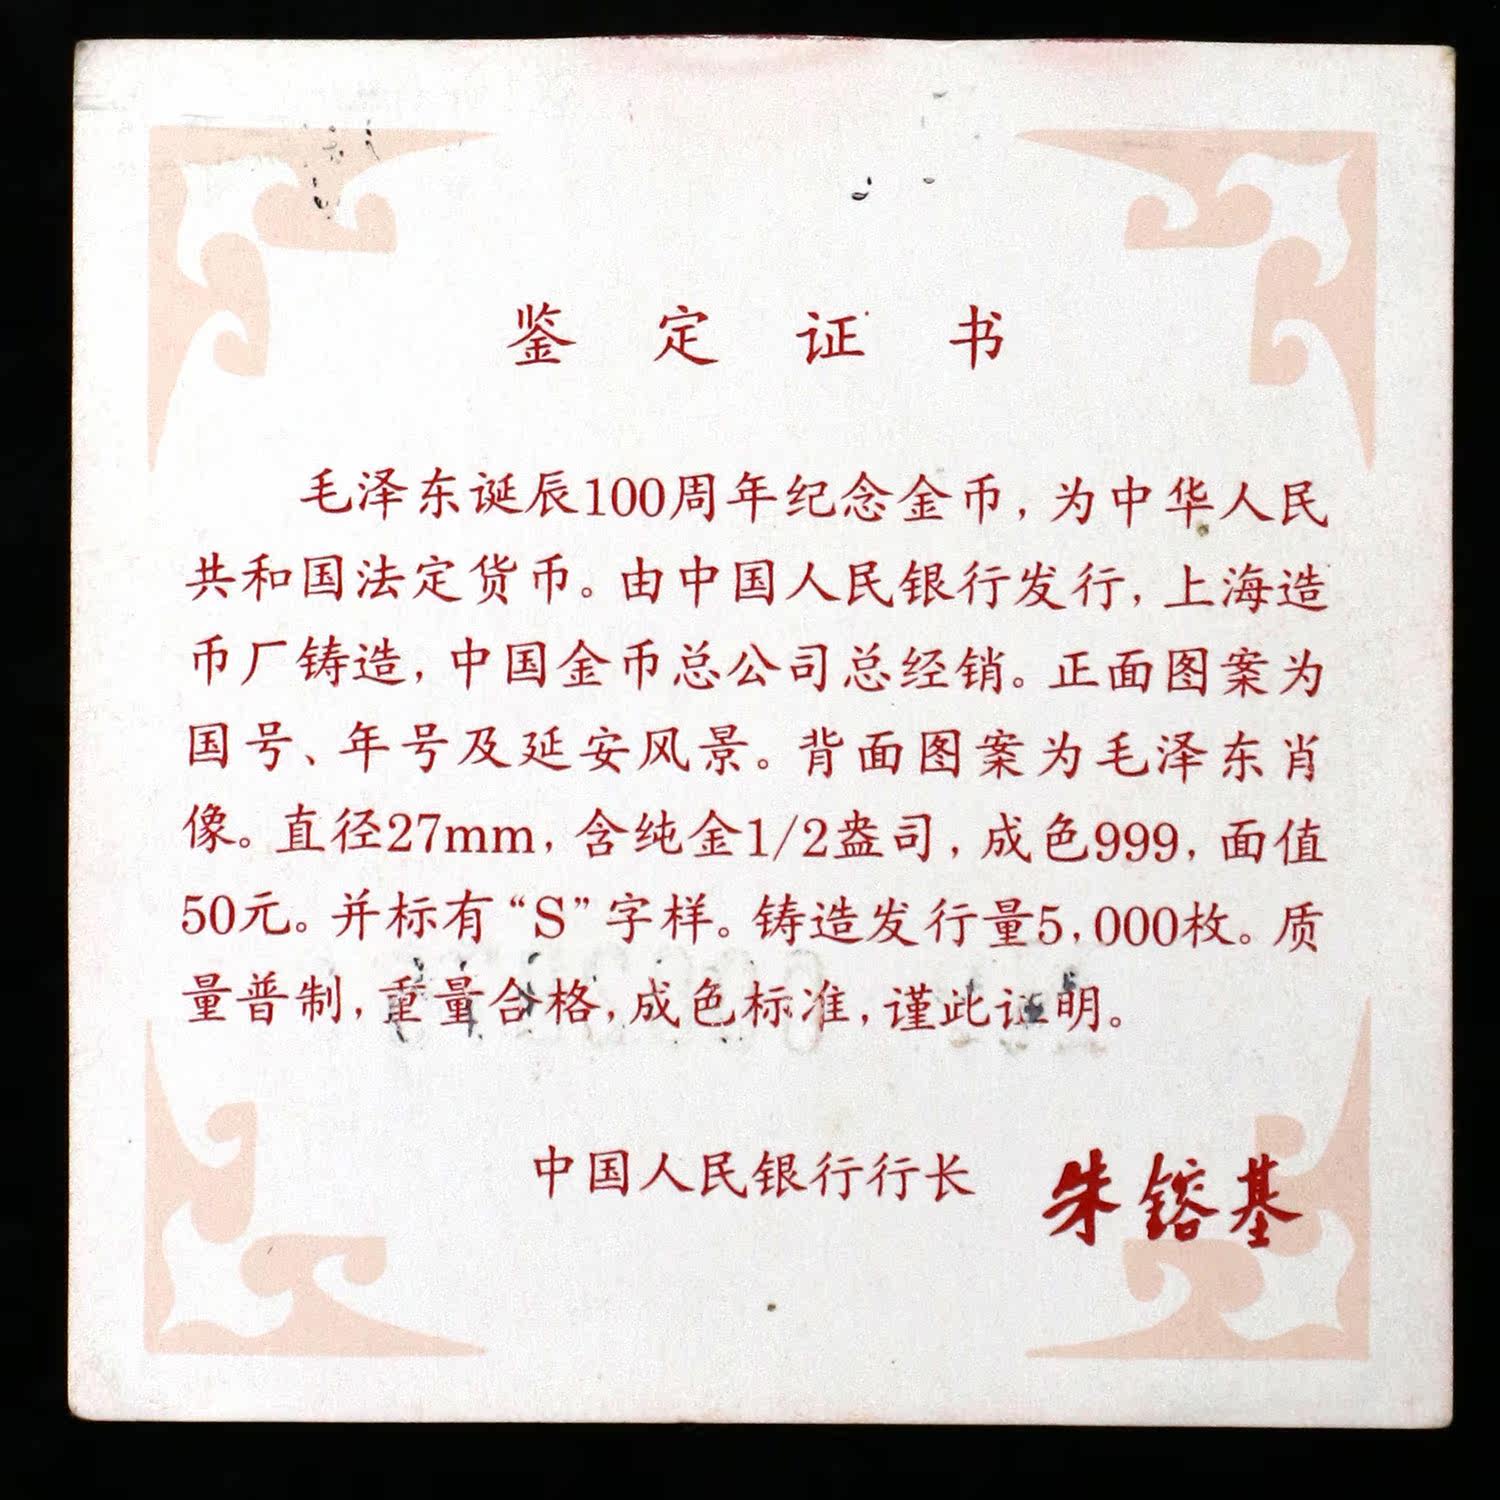 鉴定证书
毛泽东诞辰100周年纪念金币，为中华人民
共和国法定货币。由中国人民银行发行，上海造
币厂铸造，中国金币总公司总经销。正面图案为
国号、年号及延安风景。背面图案为毛泽东肖
像。直径27mm，含纯金1/2盎司，成色999，面值
50元。并标有“S”字样。铸造发行量5,000枚。质
量普制，重量合格，成色标准，谨此证明。
中国人民银行行长 朱镕基